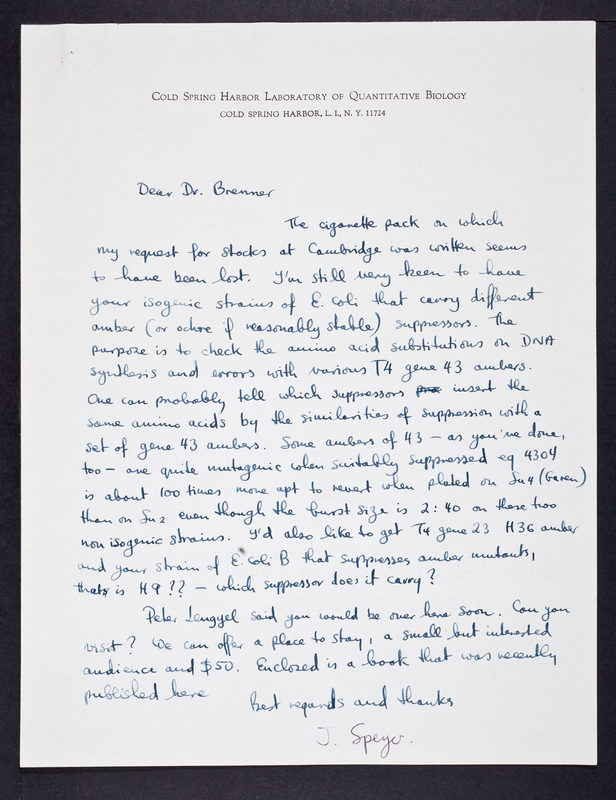 COLD SPRING HARBOR LABORATORY OF QUANTITATIVE BIOLOGY
COLD SPRING HARBOR, L. I., N. Y. 11724
Dear Dr. Brenner
The cigarette pack on which
my request for stocks at Cambridge was written seems
to have been lost. I'm still very keen to have
your isogenic strains of E. Coli that carry different
amber (or ochre if reasonably stable) suppressors. The
purpose is to check the amino acid substitutions on DNA
synthesis and errors with various T4 gene 43 ambers.
One can probably tell which suppressors insert the
same amino acids by the similarities of suppression with a
set of gene 43 ambers. Some ambers of 43 – as you've done,
too – are quite mutagenic when suitably suppressed eg 4304
is about 100 times more apt to revert when plated on Su4 (Garen)
than on Su2 even though the burst size is 2:40 on these two
non isogenic strains. I'd also like to get T4 gene 23 H36 amber
and your strain of E. Coli B that suppresses amber mutants,
that is H9?? – which suppressor does it carry?
Peter Lengyel said you would be over here soon. Can you
visit? We can offer a place to stay, a small but interested
audience and $50. Enclosed is a book that was recently
published here
Best regards and thanks
J. Speyer.